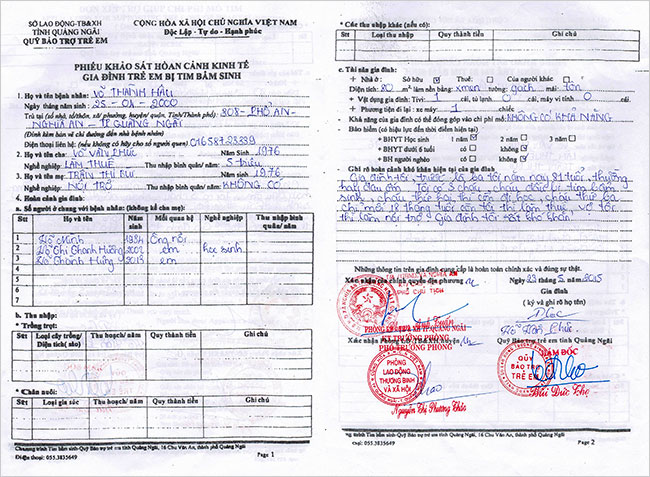 SỞ LAO ĐỘNG-TB&XH
TỈNH QUẢNG NGÃI
QUỸ BẢO TRỢ TRẺ EM
CỘNG HÒA XÃ HỘI CHỦ NGHĨA VIỆT NAM
Độc Lập - Tự do - Hạnh phúc
PHIẾU KHẢO SÁT HÒAN CẢNH KINH TẾ
GIA ĐÌNH TRẺ EM BỊ TIM BẨM SINH
1. Họ và tên bệnh nhân: VÕ THANH HẬU
Ngày tháng năm sinh: 25-01-2000
Trú tại (số nhà, tổ/thôn, xã/ phường, huyện/ quận, Tỉnh/Thành phố): 208- PHỔ AN-
NGHĨA AN - TP QUẢNG NGÃI
(Đính kèm bản vẽ chỉ đường đến nhà bệnh nhân)
Điện thoại liên hệ: (nếu không có hãy cho số người quen) 01658723339
2. Họ và tên cha: VÕ VĂN PHÚC Năm Sinh 1976
Nghề nghiệp: LÀM THUÊ Thu nhập bình quân/ năm: 5 triệu
3. Họ và tên mẹ: TRẦN THỊ BƯ Năm sinh 1976
Nghề nghiệp: NỘI TRỢ Thu nhập bình quân/ năm: KHÔNG CÓ
4. Hoàn cảnh gia đình:
a. Số người ở chung với bệnh nhân: (không kể cha mẹ)
Stt Họ và tên Năm sinh Mối quan hệ Nghề nghiệp Thu nhập bình quân/ năm
1 Võ Minh 1934 Ông nội
2 Võ Thị Thanh Hường 2002 em học sinh
3 Võ Thanh Hưng 2013 em
7
b. Thu nhập:
* Trồng trọt:
Stt Loại cây trồng/ Diện tích(sào) Thu hoạch/ năm Quy thành tiền Ghi chú
* Chăn nuôi:
Stt Loại gia súc Thu hoạch/ năm Quy thành tiền Ghi chú
Chương trình Tim bẩm sinh-Quỹ Bảo trợ trẻ em tỉnh Quảng Ngãi, 16 Chu Văn An, thành phố Quảng Ngãi
Điện thoại: 055.3835649
Page 1
* Các thu nhập khác (nếu có):
Stt Loại thu nhập Quy thành tiền Ghi chú
c. Tài sản gia đình:
+ Nhà ở: Sở hữu Thuê: Của người khác
Diện tích: 80 m² làm nền bằng: xmen tường: gạch mái: tôn
+ Vật dụng gia đình: Tivi: 1 cái, tủ lạnh 0 cái, máy vi tính 0 cái
+ Phương tiện đi lại: xe máy 1 chiếc
Khả năng của gia đình có thể đóng góp vào chi phí mổ: KHÔNG CÓ KHẢ NĂNG
Bảo hiểm (có hiệu lực đến thời điểm hiện tại)
+ BHYT Học sinh 1 năm 2 năm 3 năm
+ BH y tế có không
+ BH người nghèo có không
Ghi rõ hoàn cảnh khó khăn hiện tại của gia đình:
Gia đình tôi trước là ba tôi năm nay 81 tuổi, thường
hay đau ốm. Tôi có 3 cháu, cháu đầu bị tim bẩm
sinh, cháu thứ hai thì còn đi học, cháu thứ ba
chỉ mới 18 tháng tuổi còn tôi thì làm thuê, vợ tôi
thì làm nội trợ, gia đình tôi rất khó khăn
Những thông tin trên gia đình cung cấp là hoàn toàn chính xác và đúng sự thật.
Ngày 22 tháng 2 năm 2015
Xác nhận của chính quyền địa phương
PHÓ CHỦ TỊCH
Gia đình
( ký và ghi rõ họ tên)
Võ Văn Phúc
Xác nhận Phòng LĐ-TB&XH huyện
PHÓ TRƯỞNG PHÒNG
PHÒNG
LAO ĐỘNG
THƯƠNG BINH
VÀ XÃ HỘI
Nguyễn Thị Phương Thảo
Quỹ Bảo trợ trẻ em tỉnh Quảng Ngãi
GIÁM ĐỐC
QUỸ
BẢO TRỢ
TRẺ EM
Bùi Đức Thọ
Page 2